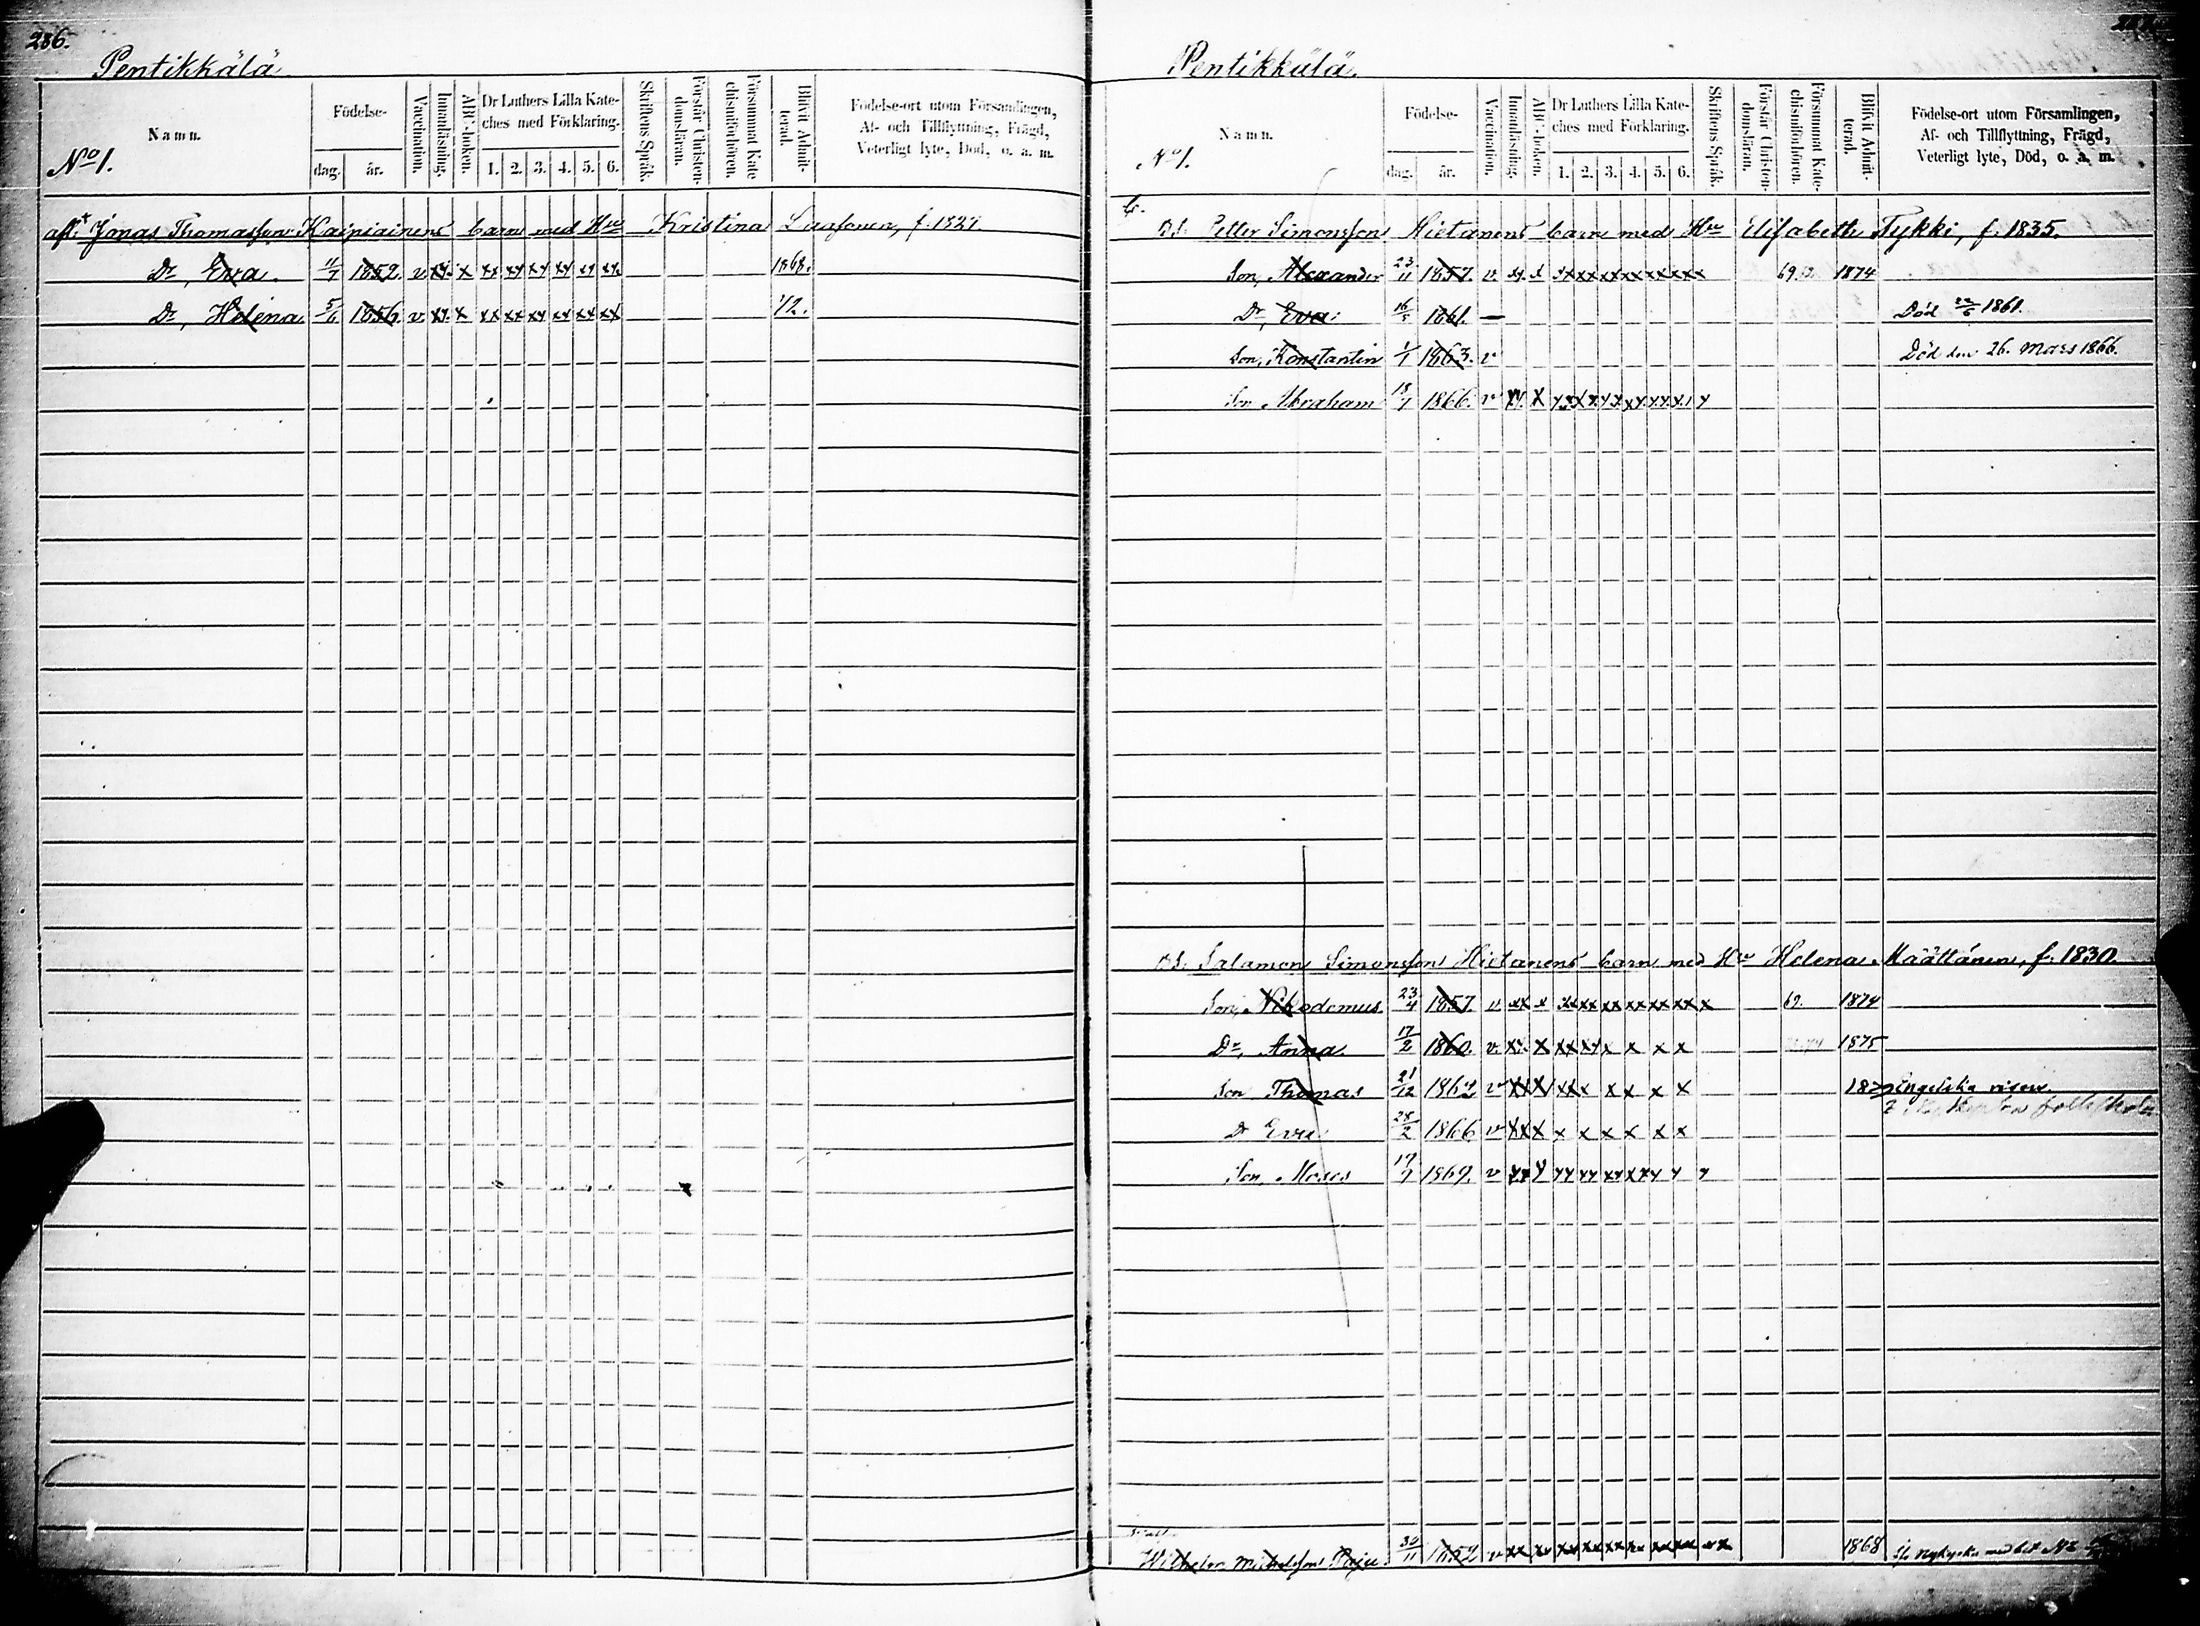 286.
Pentikkälä
Namn. Födelse- Vaccination. Innanläsning. ABC-boken. Dr Luthers Lilla Kate-ches med Förklaring. Skriftens Språk. Förstår Christen-domsläran. Försummat Kate-chismiförhören. Blifvit Admit-terad. Födelse-ort utom Församlingen, Af- och Tillflyttning, Frägd, Veterligt lyte, Död, o. a. m.
No 1. dag. år. 1. 2. 3. 4. 5. 6.
Jonas Thomasson Kaipiainens barn med Hu Kristina f. 1827
Dr, Eva. 11/7 1852. v xx. x xx xx xx xx xx xx. 1868.
Dr, Helena. 5/6 1856. v xx. x xx xx xx xx xx xx 72.
Pentikkälä.
Namn. Födelse- Vaccination. Innanläsning. ABC-boken. Dr Luthers Lilla Kate-ches med Förklaring. Skriftens Språk. Förstår Christen-domsläran. Försummat Kate-chismiförhören. Blifvit Admit-terad. Födelse-ort utom Församlingen, Af- och Tillflyttning, Frägd, Veterligt lyte, Död, o. a. m.
No 1. dag. år. 1. 2. 3. 4. 5. 6.
Bd. Petter Simonsson Hietanens barn med Hu Elisabeth Tykki, f. 1835.
Son, Alexander 23/11 1857. v xx. x xxxxxxxxxxxxx 69. 1874
Dr, Eva. 16/5 1861. — Död 22/6 1861.
Son, Konstantin 1/1 1863. v Död den 26. Mars 1866.
Son Abraham 18/7 1866. v xx. x xxxxxxxxxxxx x
Bd. Salamon Simonsson Hietanens barn med Hu Helena Määttänen, f. 1830.
Son, Nikodemus. 23/4 1857. v xx x xxxx xx xx xx xx x 69. 1874
Dr, Anna. 17/2 1860. v. xx. x xx xx x x x x 1875
Son Thomas 21/12 1862 v xx x xxx x x x x
Dr Eva 28/2 1866 v xx x x x x x x x
Son, Moses 17/7 1869. v xx x xx xx xx xxx x x
Wilhelm Michelsson 30/11 1852 v xx xx xx xx xx xx xx xx xx 1868